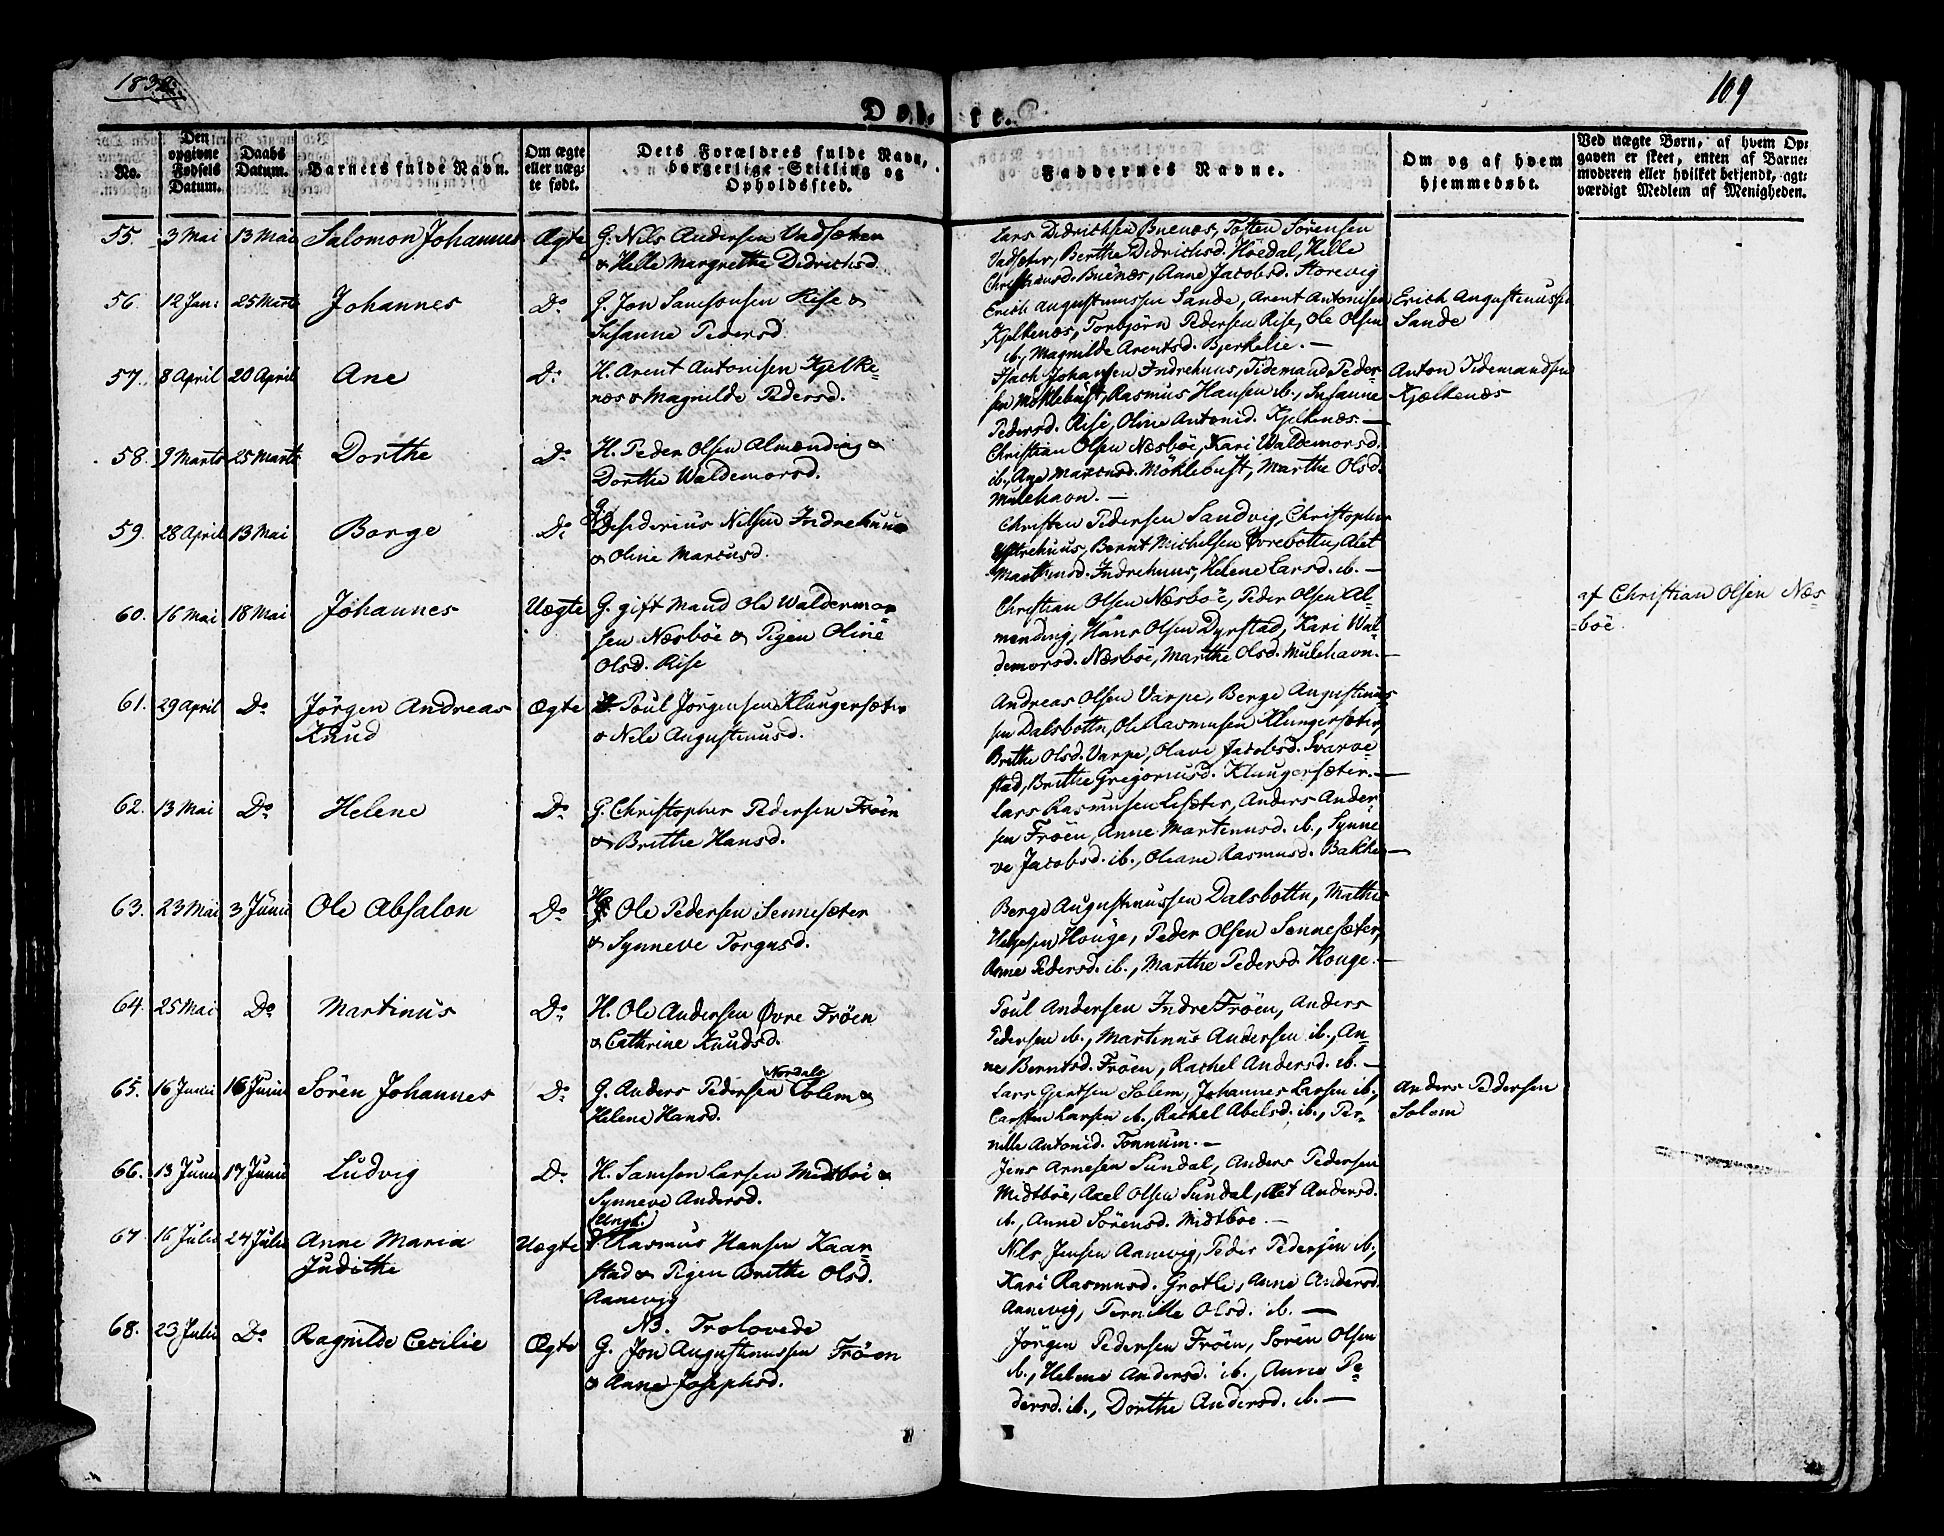 109
Døbte.
No.
Den opgivne Fødsels Datum.
Daabs Datum.
Barnets fulde Navn.
Om ægte eller uægte født.
Dets Forældres fulde Navn, borgerlige Stilling og Opholdssted.
Faddernes Navne.
Om og af hvem hjemmedøbt.
Ved uægte Børn, af hvem Opgaven er skeet, enten af Barnemoderen eller hvilket bekjendt, agtværdigt Medlem af Menigheden.
55. 3 Mai 13 Mai Salomon Johannes Ægte G. Nils Andersen Vadsæter
& Helle Margrethe Didrichsd.
Lars Didrichsen Buenæs, Tosten Sörensen
Vadsæter, Berthe Didrichsd. Höedal, Hille
Christiansd. Buenæs, Anne Jacobsd. Storevig
56. 12 Jan: 25 Marts Johannes Do G. Jon Samsonsen Rise &
Susanne Pedersd.
Erich Augustinussen Sande, Arent Antonisen
Kjelkenæs, Torbjörn Pedersen Rise, Ole Olsen
ib., Magnilde Arentsd. Bjerkelie. —
Erich Augustinussen
Sande
57. 8 April 20 April Ane Do H. Arent Antonisen Kjelke-
næs & Magnilde Pedersd.
Isach Johansen Indrehuus, Tidemand Peder-
sen Möklebust, Rasmus Hansen ib., Susanne
Pedersd. Rise, Oline Antonid. Kjelkenæs. —
Anton Tidemandsen
Kjælkenæs
58. 9 Marts 25 Marts Dorthe Do H. Peder Olsen Almending &
Dorthe Waldemorsd.
Christian Olsen Næsböe, Kari Waldemorsd.
ib., Ane Marcusd. Möklebust, Marthe Olsd.
Mulehavn. —
59. 28 April 13 Mai Borge Do G. Desiderius Nilsen Indrehuus
& Oline Marcusd.
Christen Pedersen Sandvig, Christopher
Ystrehuus, Bernt Michelsen Øvrebotten, Alet
Martinusd. Indrehuus, Helene Larsd. ib. —
60. 16 Mai 18 Mai Johannes Uægte G. gift Mand Ole Waldemor-
sen Næsböe & Pigen Oline
Olsd. Rise
Christian Olsen Næsböe, Peder Olsen Al-
mending, Hans Olsen Dyrstad, Kari Wal-
demorsd. Næsböe, Marthe Olsd. Mulehavn. —
af Christian Olsen Næs-
böe.
61. 29 April Do Jörgen Andreas
Knud
Ægte H. Poul Jörgensen Klungersæter
& Nele Augustinusd.
Andreas Olsen Varpe, Berge Augustinus-
sen Dalsbotten, Ole Rasmusen Klungersæter,
Brithe Olsd. Varpe, Olave Jacobsd. Svarve-
stad, Brithe Gregoriusd. Klungersæter. —
62. 13 Mai Do Helene Do G. Christopher Pedersen Fröen
& Brithe Hansd.
Lars Rasmusen Lesæter, Anders Ander-
sen Fröen, Anne Martinusd. ib., Synne-
ve Jacobsd. ib., Oleane Rasmusd. Bakke —
63. 23 Mai 3 Junii Ole Absalon Do H. Ole Pedersen Sennesæter
& Synneve Torgusd.
Berge Augustinussen Dalsbotten, Mathis
Helgesen Houge, Peder Olsen Sennesæter,
Anne Pedersd. ib., Marthe Pedersd. Houge. —
64. 25 Mai Do Martinus Do H. Ole Andersen Øvre Fröen
& Cathrine Knudsd.
Poul Andersen Indre Fröen, Anders
Pedersen ib., Martinus Andersen ib., An-
ne Berntsd. Fröen, Rachel Andersd. ib. —
65. 16 Junii 16 Junii Sören Johannes Do G. Anders Pedersen Nordale Solem &
Helene Hansd.
Lars Gjertsen Solem, Johannes Larsen ib.,
Carsten Larsen ib., Rachel Abelsd. ib., Per-
nille Antonid. Tonnum. —
Anders Pedersen
Solem
66. 13 Junii 17 Junii Ludvig Do H. Samson Larsen Midtböe &
Synneve Andersd.
Jens Arnesen Sundal, Anders Pedersen
Midtböe, Axel Olsen Sundal, Alet Andersd.
ib., Anne Sörensd. Midtböe. —
67. 16 Julii 24 Julii Anne Maria
Judithe
Uægte Ungk. Rasmus Hansen Kaar-
stad & Pigen Brithe Olsd.
Aanevig
Nils Jensen Aanevig, Peder Pedersen ib.,
Kari Rasmusd. Grotle, Anne Andersd.
Aanevig, Pernille Olsd. ib. —
68. 23 Julii Do Ragnilde Cecilie Ægte NB. Trolovede
G. Jon Augustinussen Fröen
& Anne Josephsd.
Jörgen Pedersen Fröen, Sören Olsen
ib., Helene Andersd. ib., Anne Pe-
dersd. ib., Dorthe Andersd. ib. —